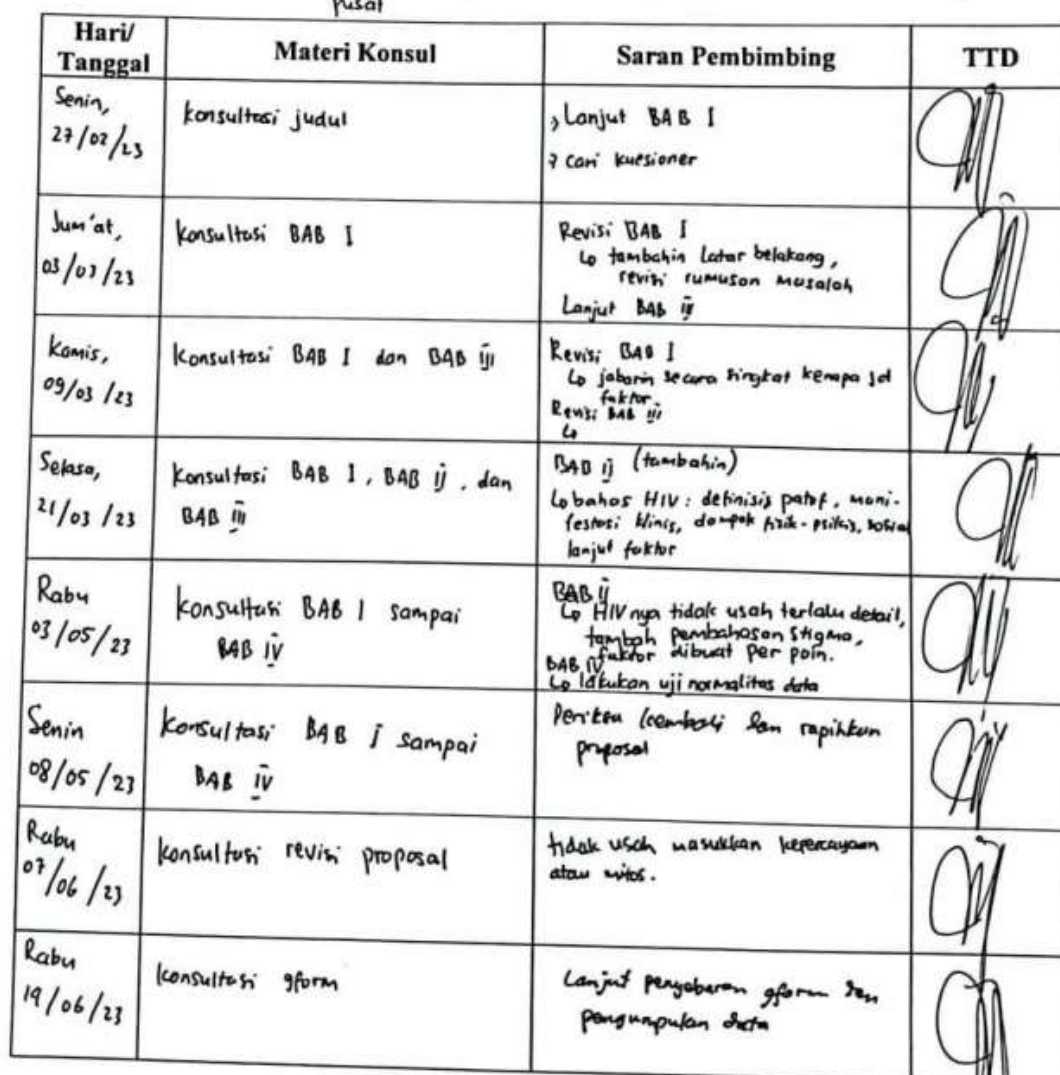 pusat
Hari/
Tanggal
Materi Konsul
Saran Pembimbing
TTD
Senin,
27/02/23
konsultasi judul
> Lanjut BAB I
> cari kuesioner
Jum'at,
03/03/23
Konsultasi BAB I
Revisi BAB I
↳ tambahin Latar belakang,
revisi rumusan masalah
Lanjut BAB III
Kamis,
09/03/23
Konsultasi BAB I dan BAB III
Revisi BAB I
↳ jabarin secara singkat kenapa jd
faktor
Revisi BAB III
↳
Selasa,
21/03/23
Konsultasi BAB I, BAB II, dan
BAB III
BAB II (tambahin)
↳ bahas HIV: definisis patof, mani-
festasi klinis, dampak fisik-psikis, sosial
lanjut faktor
Rabu
03/05/23
Konsultasi BAB I sampai
BAB IV
BAB II
↳ HIV nya tidak usah terlalu detail,
tambah pembahasan stigma,
faktor dibuat per poin.
BAB IV
↳ lakukan uji normalitas data
Senin
08/05/23
Konsultasi BAB I sampai
BAB IV
Periksa kembali dan rapihkan
proposal
Rabu
07/06/23
Konsultasi revisi proposal
tidak usah masukkan kepercayaan
atau mitos.
Rabu
19/06/23
Konsultasi gform
Lanjut penyebaran gform dan
pengumpulan data